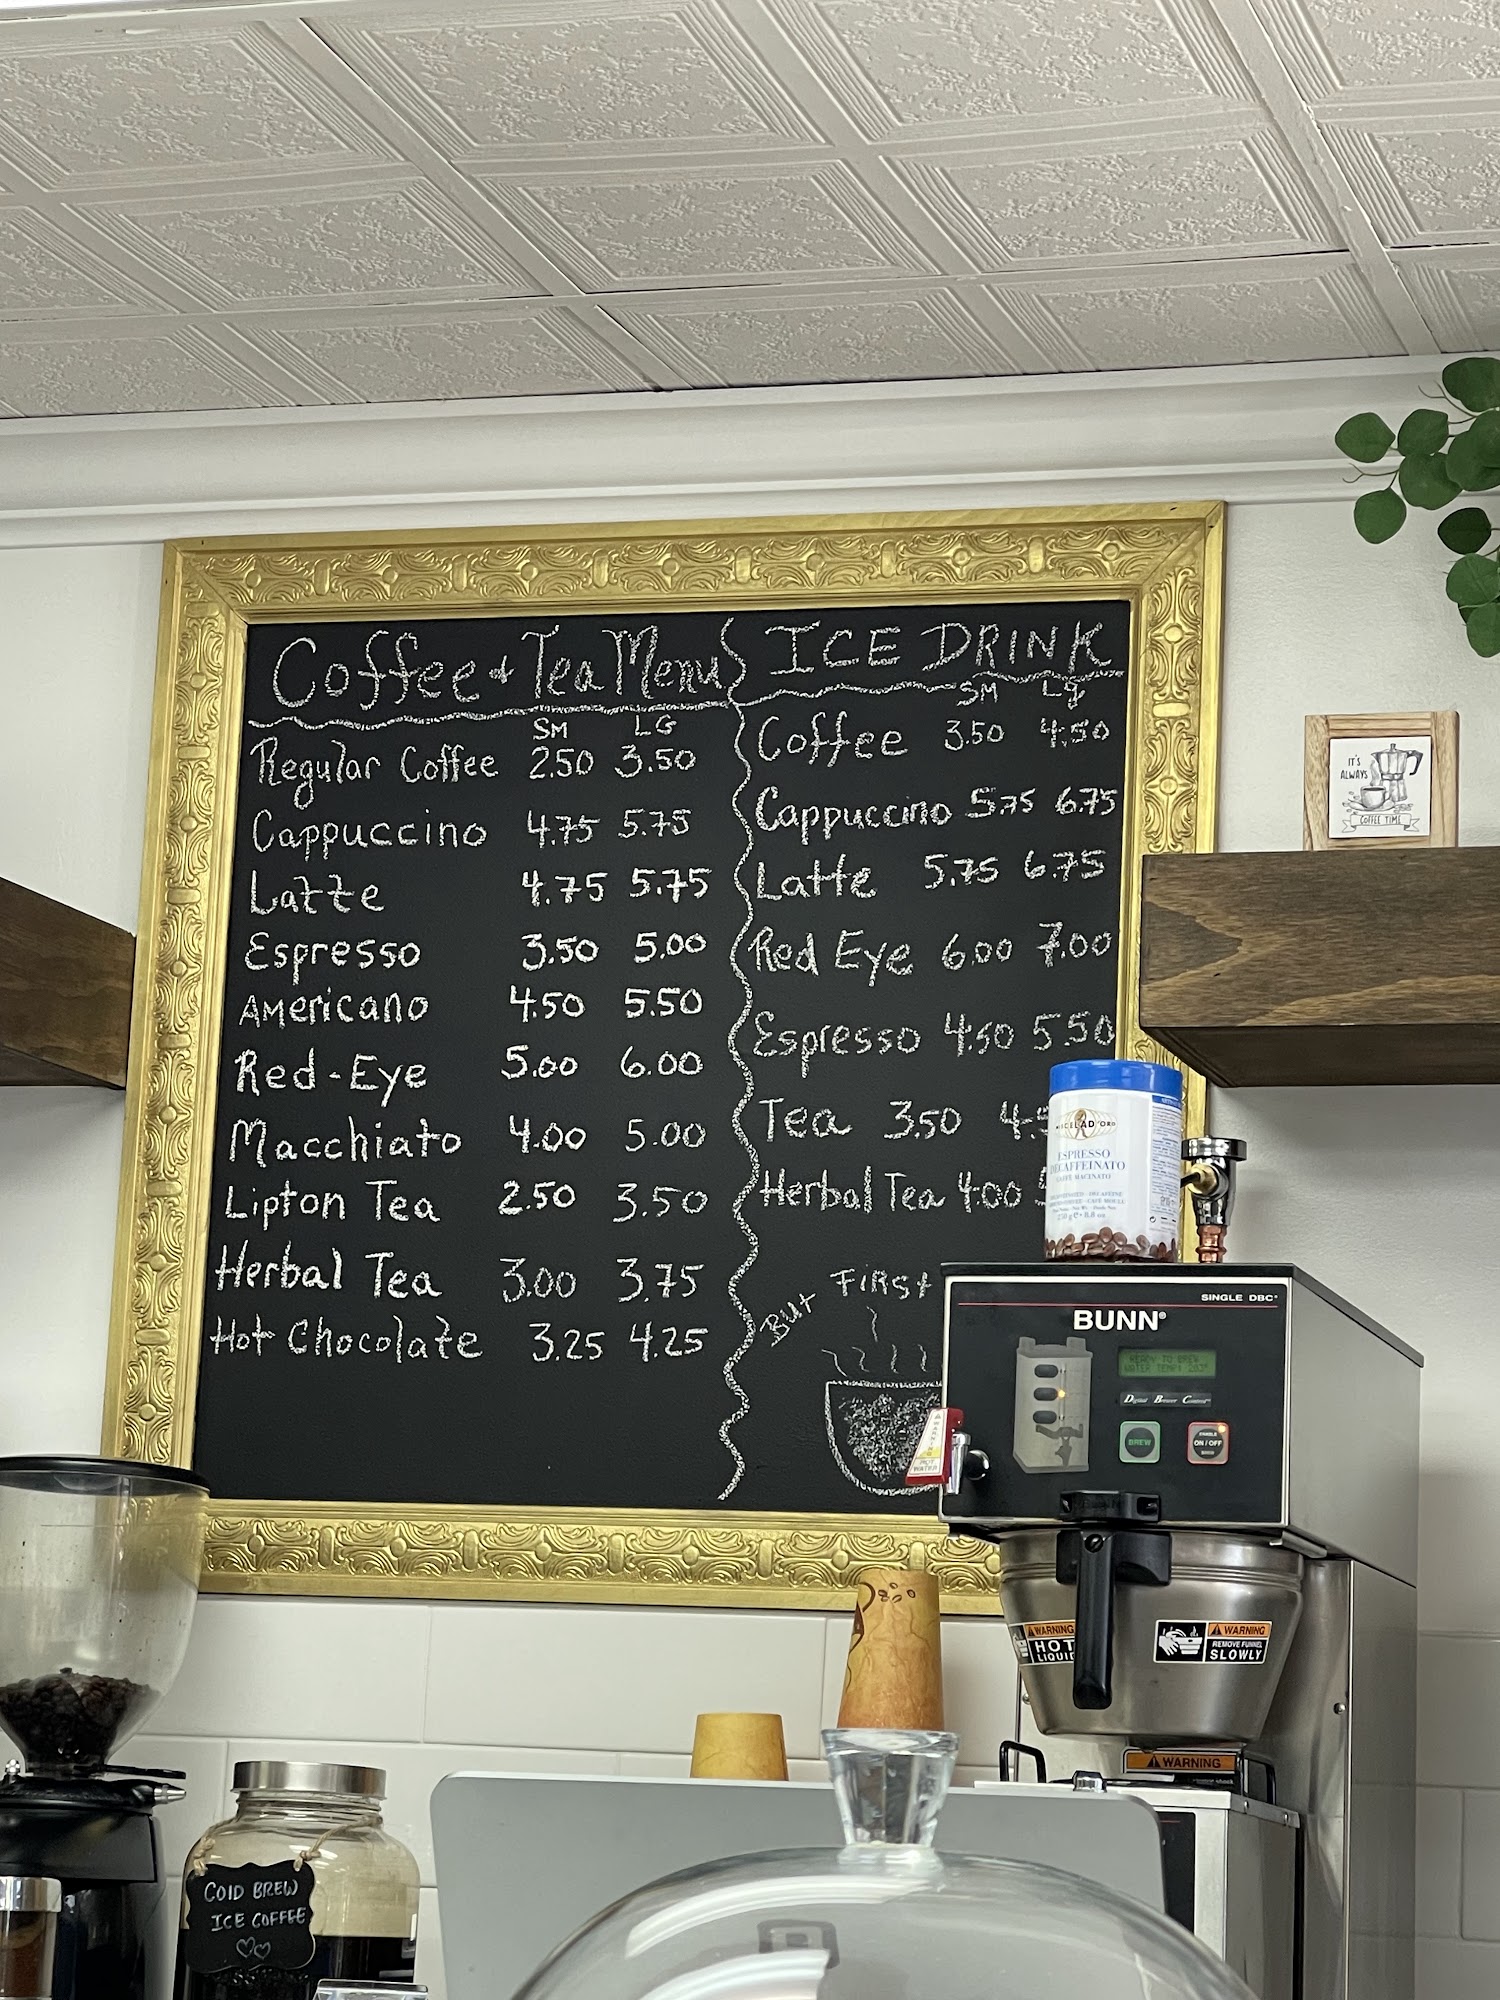 Coffee + Tea Menu
SM LG
Regular Coffee 2.50 3.50
Cappuccino 4.75 5.75
Latte 4.75 5.75
Espresso 3.50 5.00
Americano 4.50 5.50
Red-Eye 5.00 6.00
Macchiato 4.00 5.00
Lipton Tea 2.50 3.50
Herbal Tea 3.00 3.75
Hot Chocolate 3.25 4.25
ICE DRINK
SM Lg
Coffee 3.50 4.50
Cappuccino 5.75 6.75
Latte 5.75 6.75
Red Eye 6.00 7.00
Espresso 4.50 5.50
Tea 3.50
Herbal Tea 4.00
But First
IT'S
ALWAYS
COFFEE TIME
ESPRESSO
DECAFFEINATO
CAFFÈ MACINATO
SINGLE DBC
BUNN®
READY TO BREW
Digital Brewer Control
BREW
ON / OFF
WARNING
HOT
LIQUID
WARNING
REMOVE FUNNEL
SLOWLY
WARNING
COLD BREW
ICE COFFEE